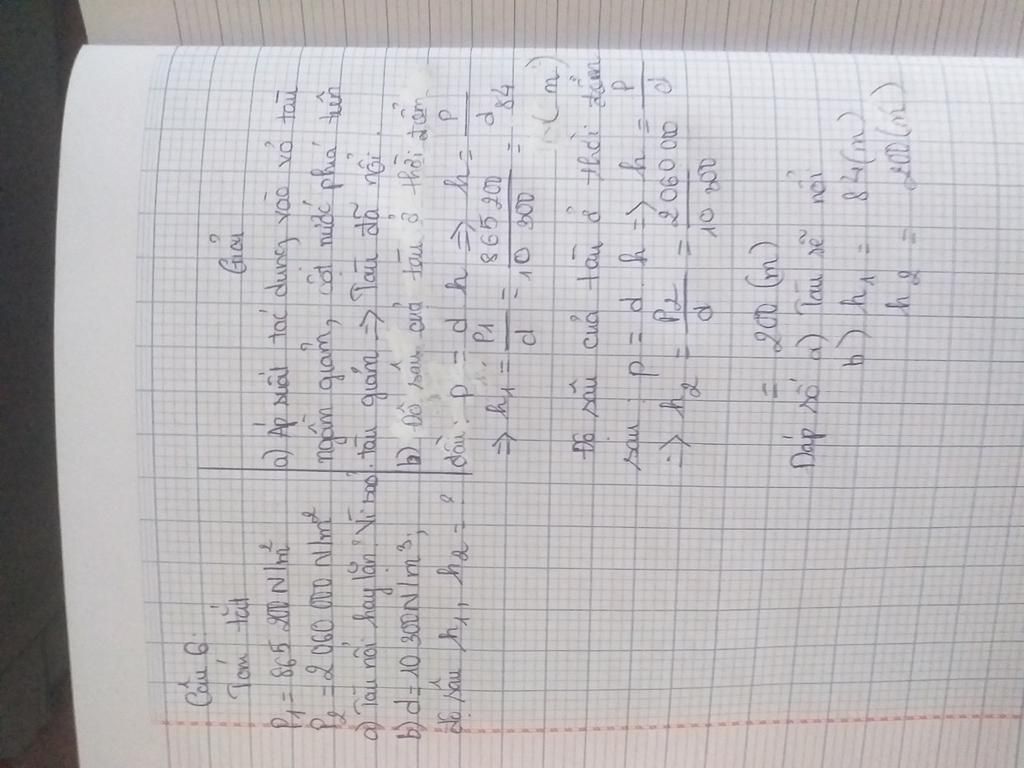 Câu 6:
Tóm tắt
P1 = 865 200 N/m²
P2 = 2 060 000 N/m²
a) Tàu nổi hay lặn? Vì sao?
b) d = 10 300 N/m³,
độ sâu h1, h2 = ?
Giải
a) Áp suất tác dụng vào vỏ tàu
ngầm giảm, cột nước phía trên
tàu giảm => Tàu đã nổi.
b) Độ sâu của tàu ở thời điểm
đầu: p = d h => h = p/d
=> h1 = P1/d = 865 200/10 300 = 84
(m)
Độ sâu của tàu ở thời điểm
sau: p = d h => h = p/d
=> h2 = P2/d = 2 060 000/10 300
= 200 (m)
Đáp số a) Tàu sẽ nổi
b) h1 = 84 (m)
h2 = 200 (m)